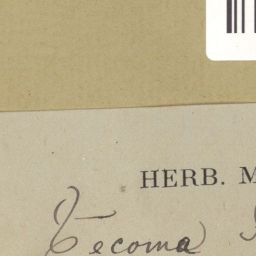 HERB. M
Tecoma